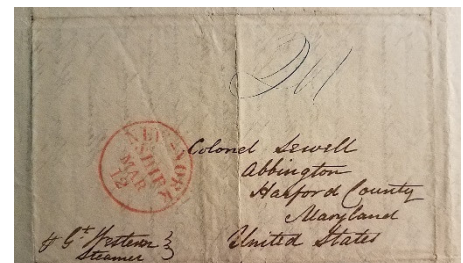 NEW-YORK
SHIP
MAR
12
Colonel Sewell
Abbington
Harford County
Maryland
United States
Gt. Western
Steamer